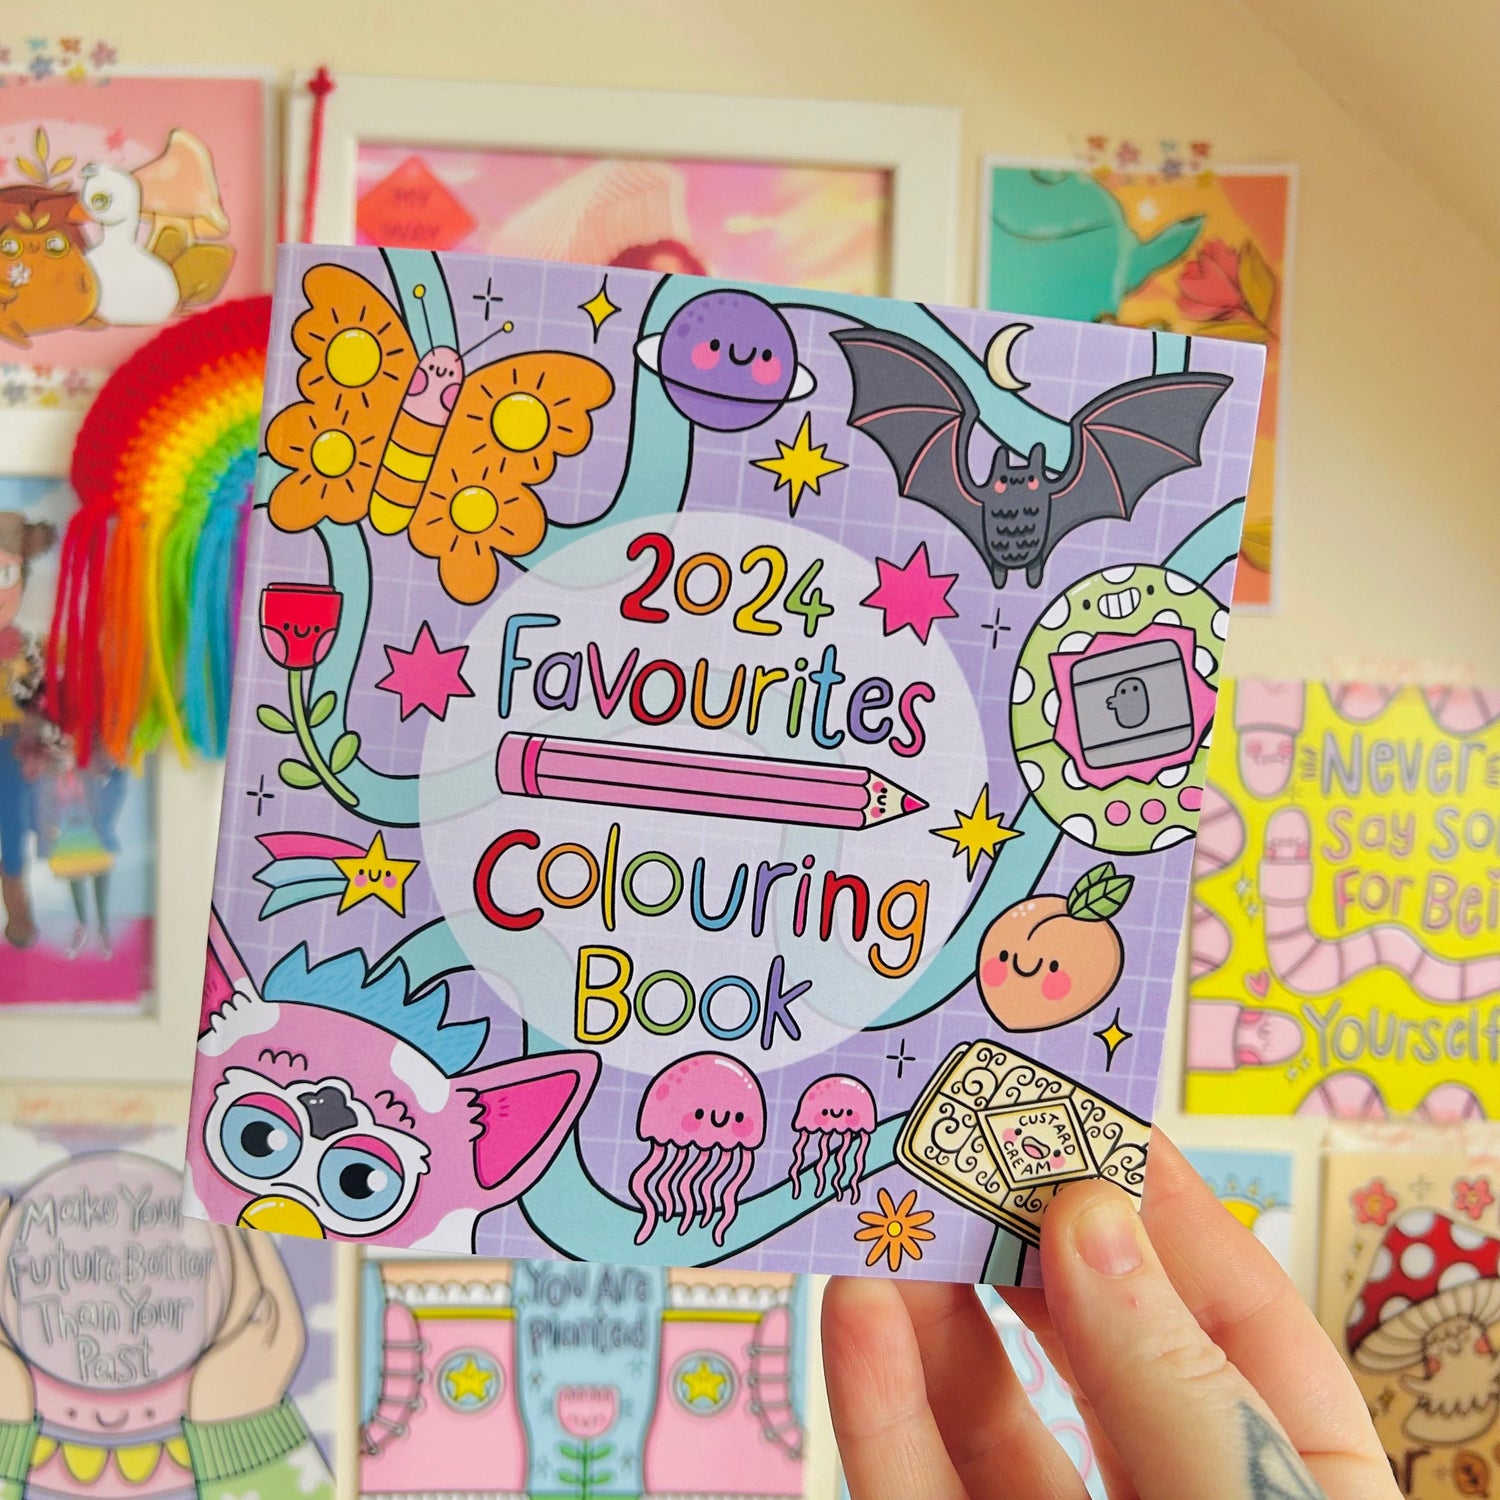 MY
WAY
2024
Favourites
Colouring
Book
CUSTARD
CREAM
Never
Say So
For Bei
Yourself
Make Your
Future Better
Than Your
Past
You Are
Planted